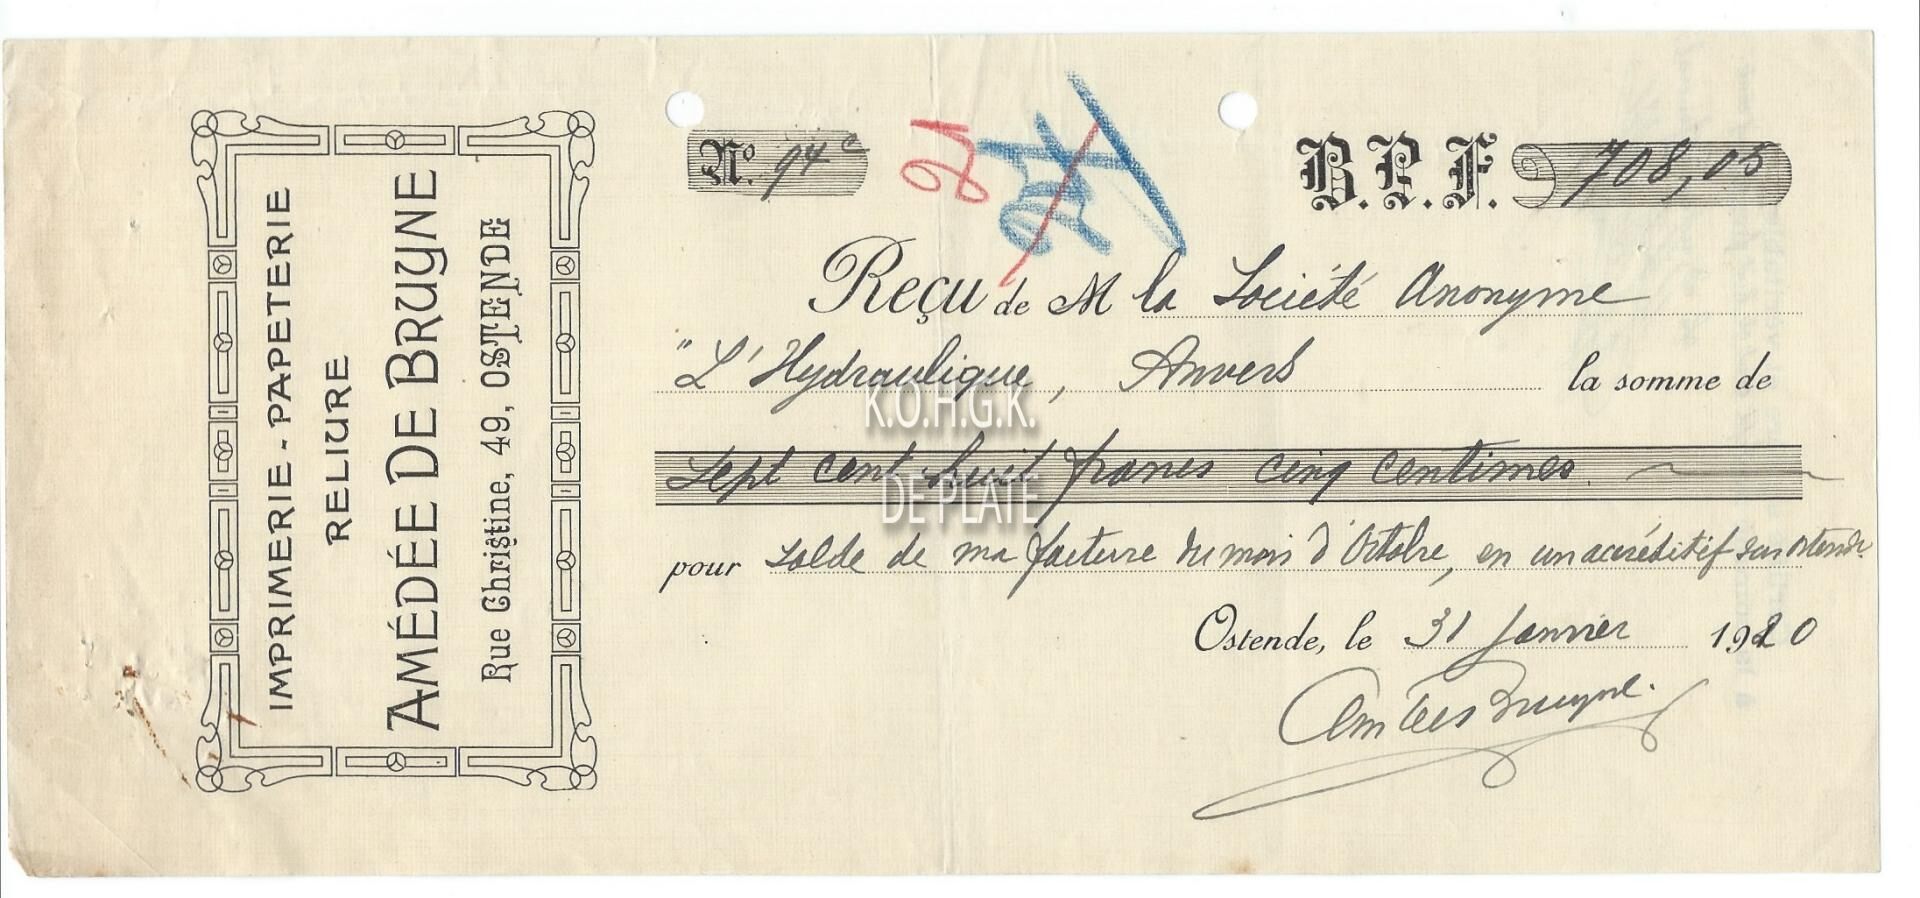 IMPRIMERIE - PAPETERIE
RELIURE
AMÉDÉE DE BRUYNE
Rue Christine, 49, OSTENDE
No. 94c
B.P.F. 708,05
Reçu de M la Société Anonyme
"L'Hydraulique, Anvers la somme de
Sept cent huit francs cinq centimes.
pour solde de ma facture du mois d'Octobre, en un accréditif sur Ostende
Ostende, le 31 Janvier 1920
K.O.H.G.K.
DE PLATE